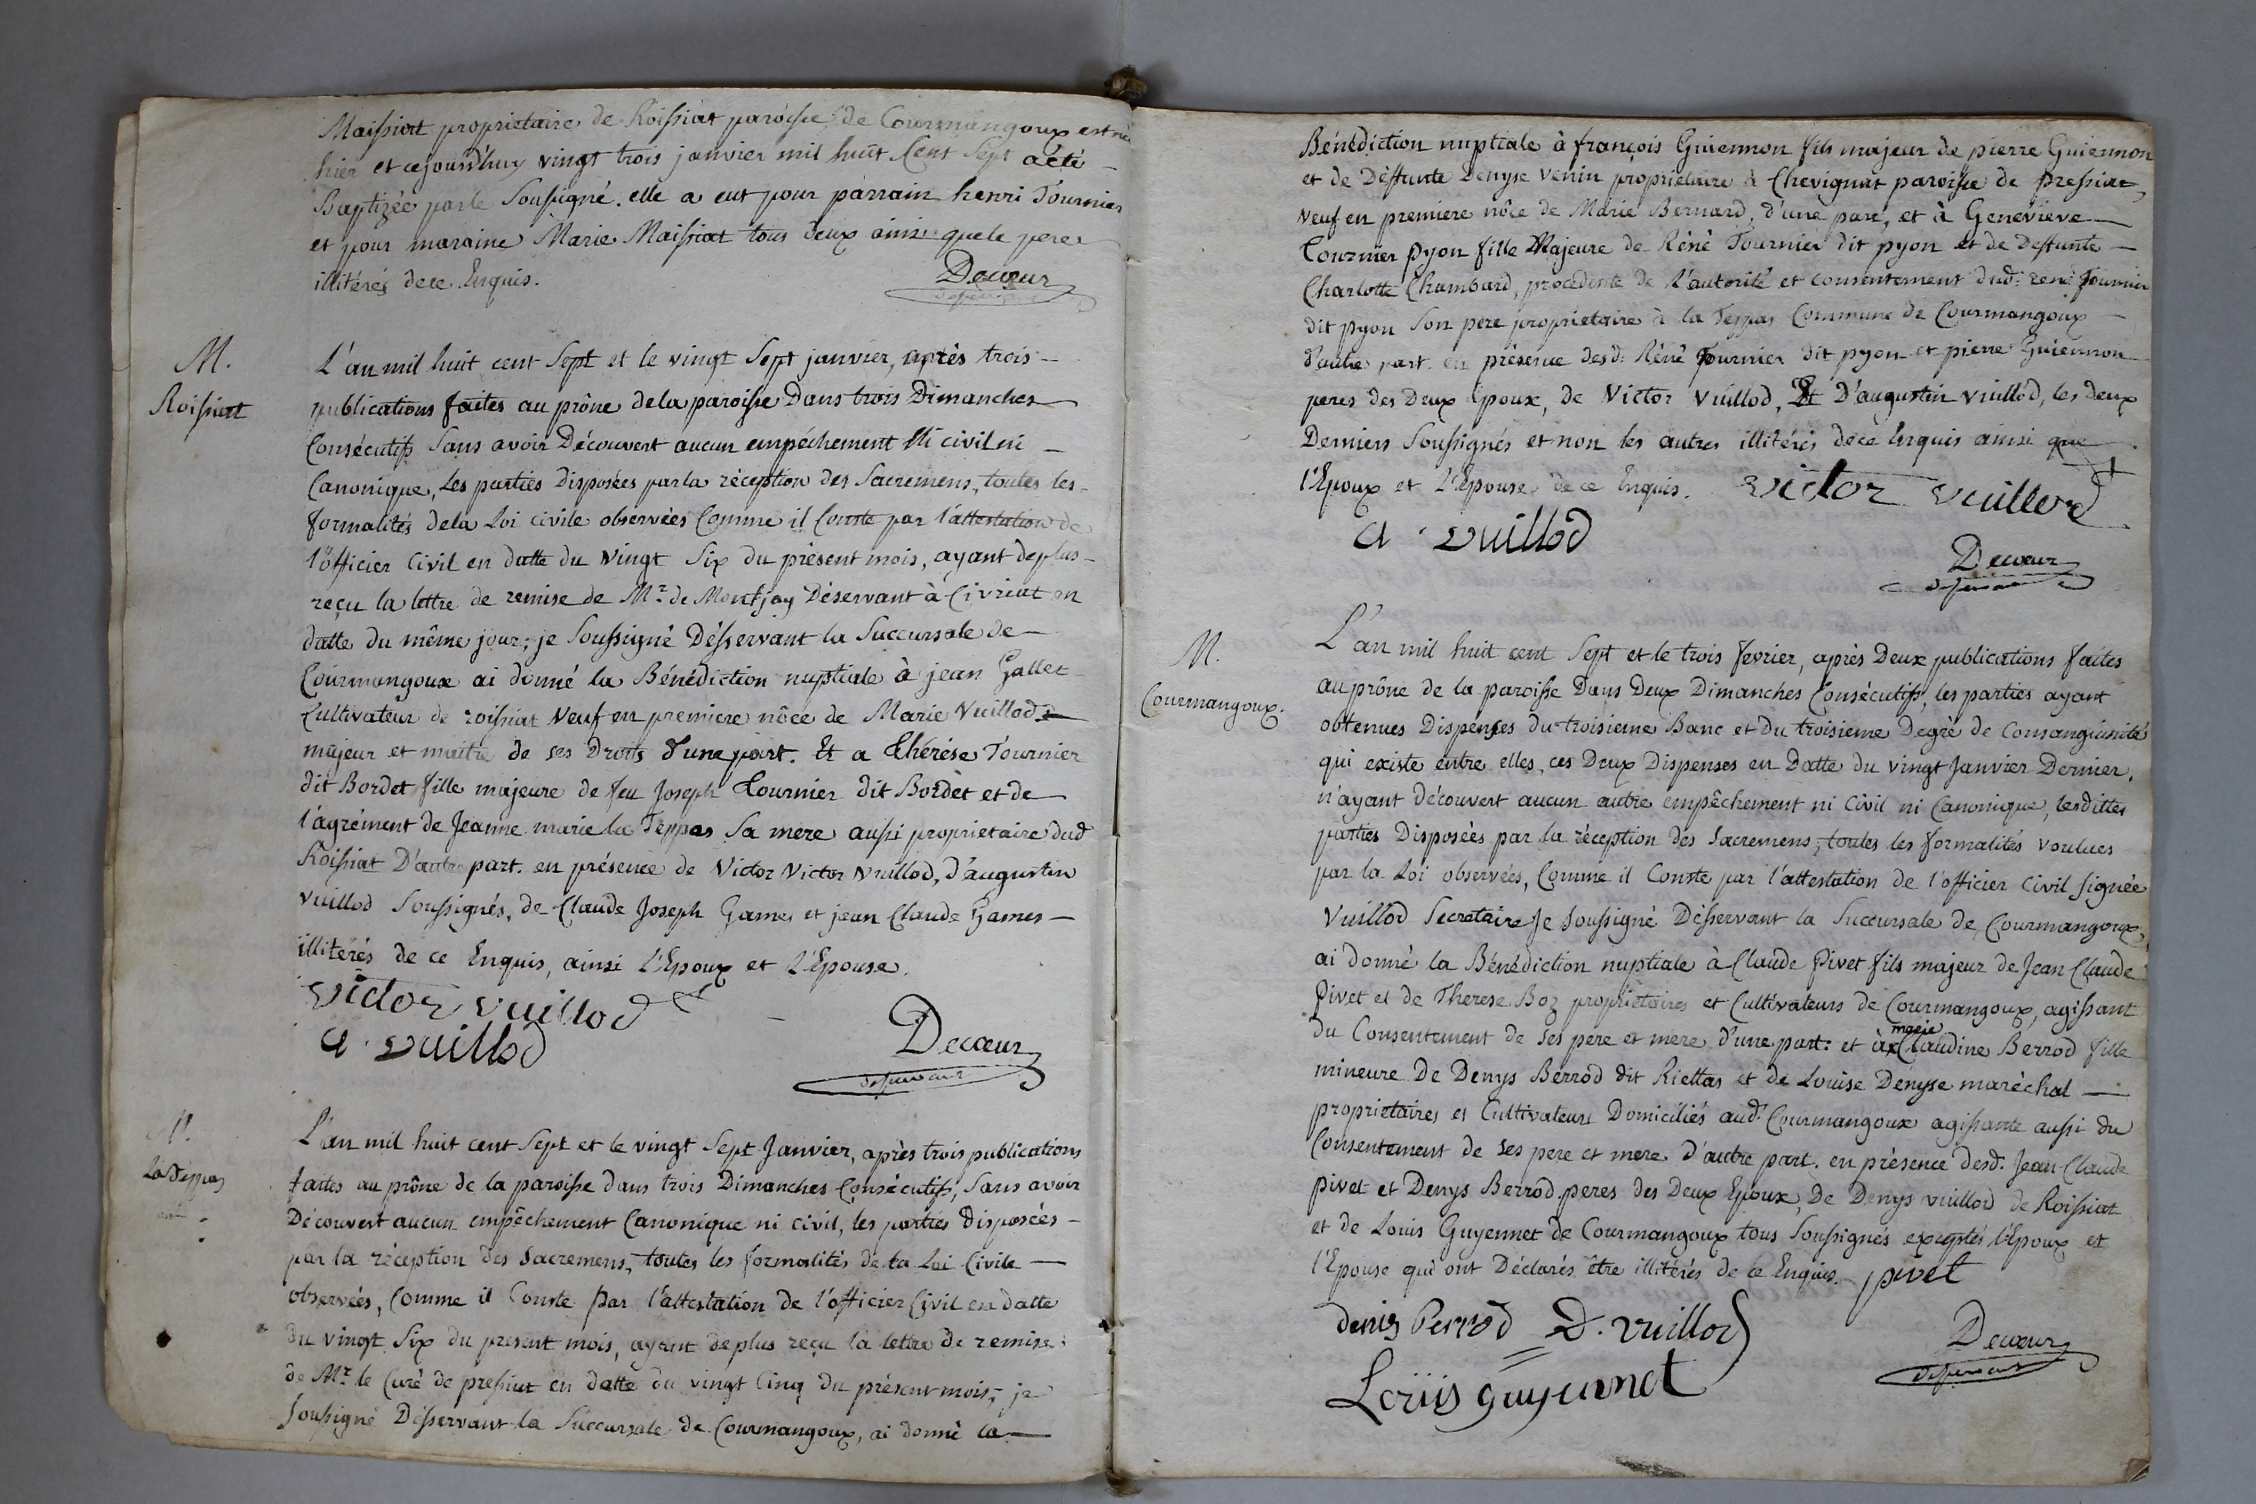 Maissiat proprietaire de Roissiat paroisse de Courmangoux est née
hier et cejourd'huy vingt trois janvier mil huit Cent Sept a été
Baptizée par le Soussigné. elle a eut pour parrain henri Tournier
et pour maraine Marie Maissiat tous deux ainsi que le pere
illitérés de ce Enquis.
Decœur
desservant
M.
Roissiat
L'an mil huit cent Sept et le vingt Sept janvier, après trois
publications faites au prône de la paroisse Dans trois Dimanches
Consécutifs Sans avoir Découvert aucun empéchement Ni civil ni
Canonique, Les parties disposées par la réception des Sacremens, toutes les
formalités de la Loi civile observées Comme il Conste par l'attestation de
l'officier Civil en datte du vingt Six du présent mois, ayant de plus
reçu la lettre de remise de Mr de Montjay Déservant à Civriat en
datte du même jour; je Soussigné Désservant la Succursale de
Courmangoux ai donné la Bénédiction nuptiale à jean Gallet
Cultivateur de roissiat Veuf en premiere nôce de Marie Vuillod
majeur et maitre de ses Droits d'une part. Et a Thérése Tournier
dit Bordet fille majeure de feu Joseph Tournier dit Bordèt et de
l'agrément de Jeanne marie la Teppas Sa mere aussi proprietaire dud
Roissiat D'autre part. en présence de Victor Victor Vuillod, d'augustin
Vuillod Soussignés, de Claude Joseph Games et jean Claude Games
illitérés de ce Enquis, ainsi L'Epoux et L'Epouse.
Victor vuillod
a. vuillod
Decœur
desservant
M.
La Teppas
L'an mil huit cent Sept et le vingt Sept Janvier, après trois publications
faites au prône de la paroisse dans trois Dimanches Consécutifs, Sans avoir
Découvert aucun empêchement Canonique ni civil, les parties disposées
par la réception des Sacremens, toutes les formalités de la Loi Civile
observées, Comme il Conste par l'attestation de l'officier Civil en datte
du vingt Six du present mois, ayant de plus reçu la lettre de remise
de Mr le Curé de pressiat en datte du vingt Cinq du présent mois; je
Soussigné Désservant la Succursale de Courmangoux, ai donné la
Bénédiction nuptiale à françois Guiennon fils majeur de pierre Guiennon
et de Déffunte Denyse Venin proprietaire à Chevignat paroisse de pressiat,
Veuf en premiere nôce de Marie Bernard, d'une part, et à Genevieve
Tournier pyon fille Majeure de Réné Tournier dit pyon et de Deffunte
Charlotte Chambard, procédente de L'autorité et consentement dud. rené Tournier
dit pyon Son pere proprietaire à la Teppas Commune de Courmangoux
d'autre part. en présence desd. Réné Tournier dit pyon et pierre Guiennon
peres des Deux Epoux, de Victor Vuillod, Et D'augustin vuillod, les deux
Derniers Soussignés et non les autres illitérés de ce Enquis ainsi que
l'Epoux et L'Epouse de ce Enquis. Victor Vuillod
a. vuillod
Decœur
desservant
M.
Courmangoux.
L'an mil huit cent Sept et le trois fevrier, après Deux publications faites
au prône de la paroisse Dans Deux Dimanches Consécutifs, les parties ayant
obtenues Dispenses du troisieme Banc et Du troisieme Degré de Consanguinité
qui existe entre elles, ces Deux Dispenses en Datte du vingt Janvier Dernier.
n'ayant découvert aucun autre empêchement ni Civil ni Canonique, lesdittes
parties Disposées par la réception des Sacremens, toutes les formalités voulues
par la Loi observées, Comme il Conste par l'attestation de l'officier Civil signée
Vuillod Secretaire Je Soussigné Désservant la Succursale de Courmangoux,
ai donné la Bénédiction nuptiale à Claude Pivet fils majeur de Jean Claude
Pivet et de Therese Boz proprietaires et Cultivateurs de Courmangoux, agissant
du Consentement de ses pere et mere d'une part: et à marie Claudine Berrod fille
mineure De Denys Berrod dit Riettas et de Louise Denyse maréchal
proprietaires et Cultivateurs Domiciliés aud. Courmangoux agissante aussi du
Consentement de ses pere et mere d'autre part. en présence desd. Jean Claude
pivet et Denys Berrod peres des Deux Epoux, De Denys vuillod de Roissiat
et de Louis Guyennet de Courmangoux tous Soussignés exceptés l'Epoux et
l'Epouse qui ont Déclarés être illitérés de ce Enquis. pivet
denis Perrod D. Vuillod
Decœur
desservant
Loüis guyennet